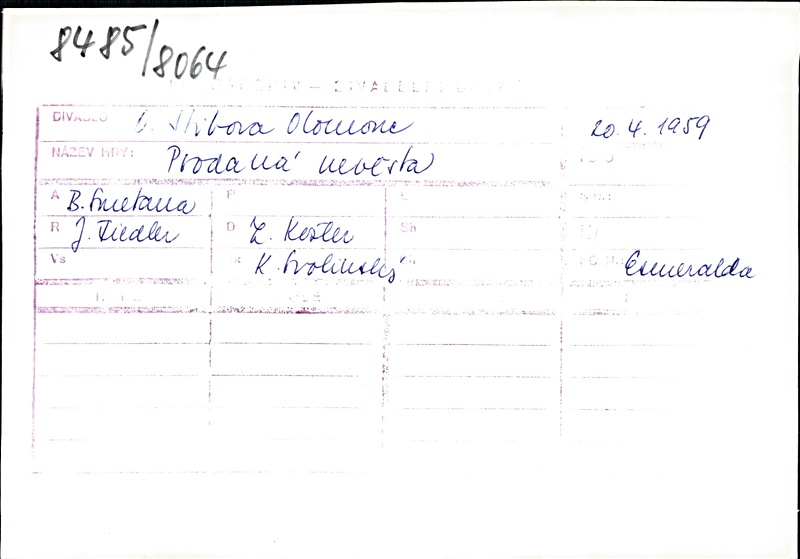 8485/8064
DIVADLO O. Stibora Olomouc 20. 4. 1959
NÁZEV HRY: Prodaná nevěsta
A B. Smetana P
R J. Fiedler D Z. Košler Sh
Vs K. Svolinský Esmeralda